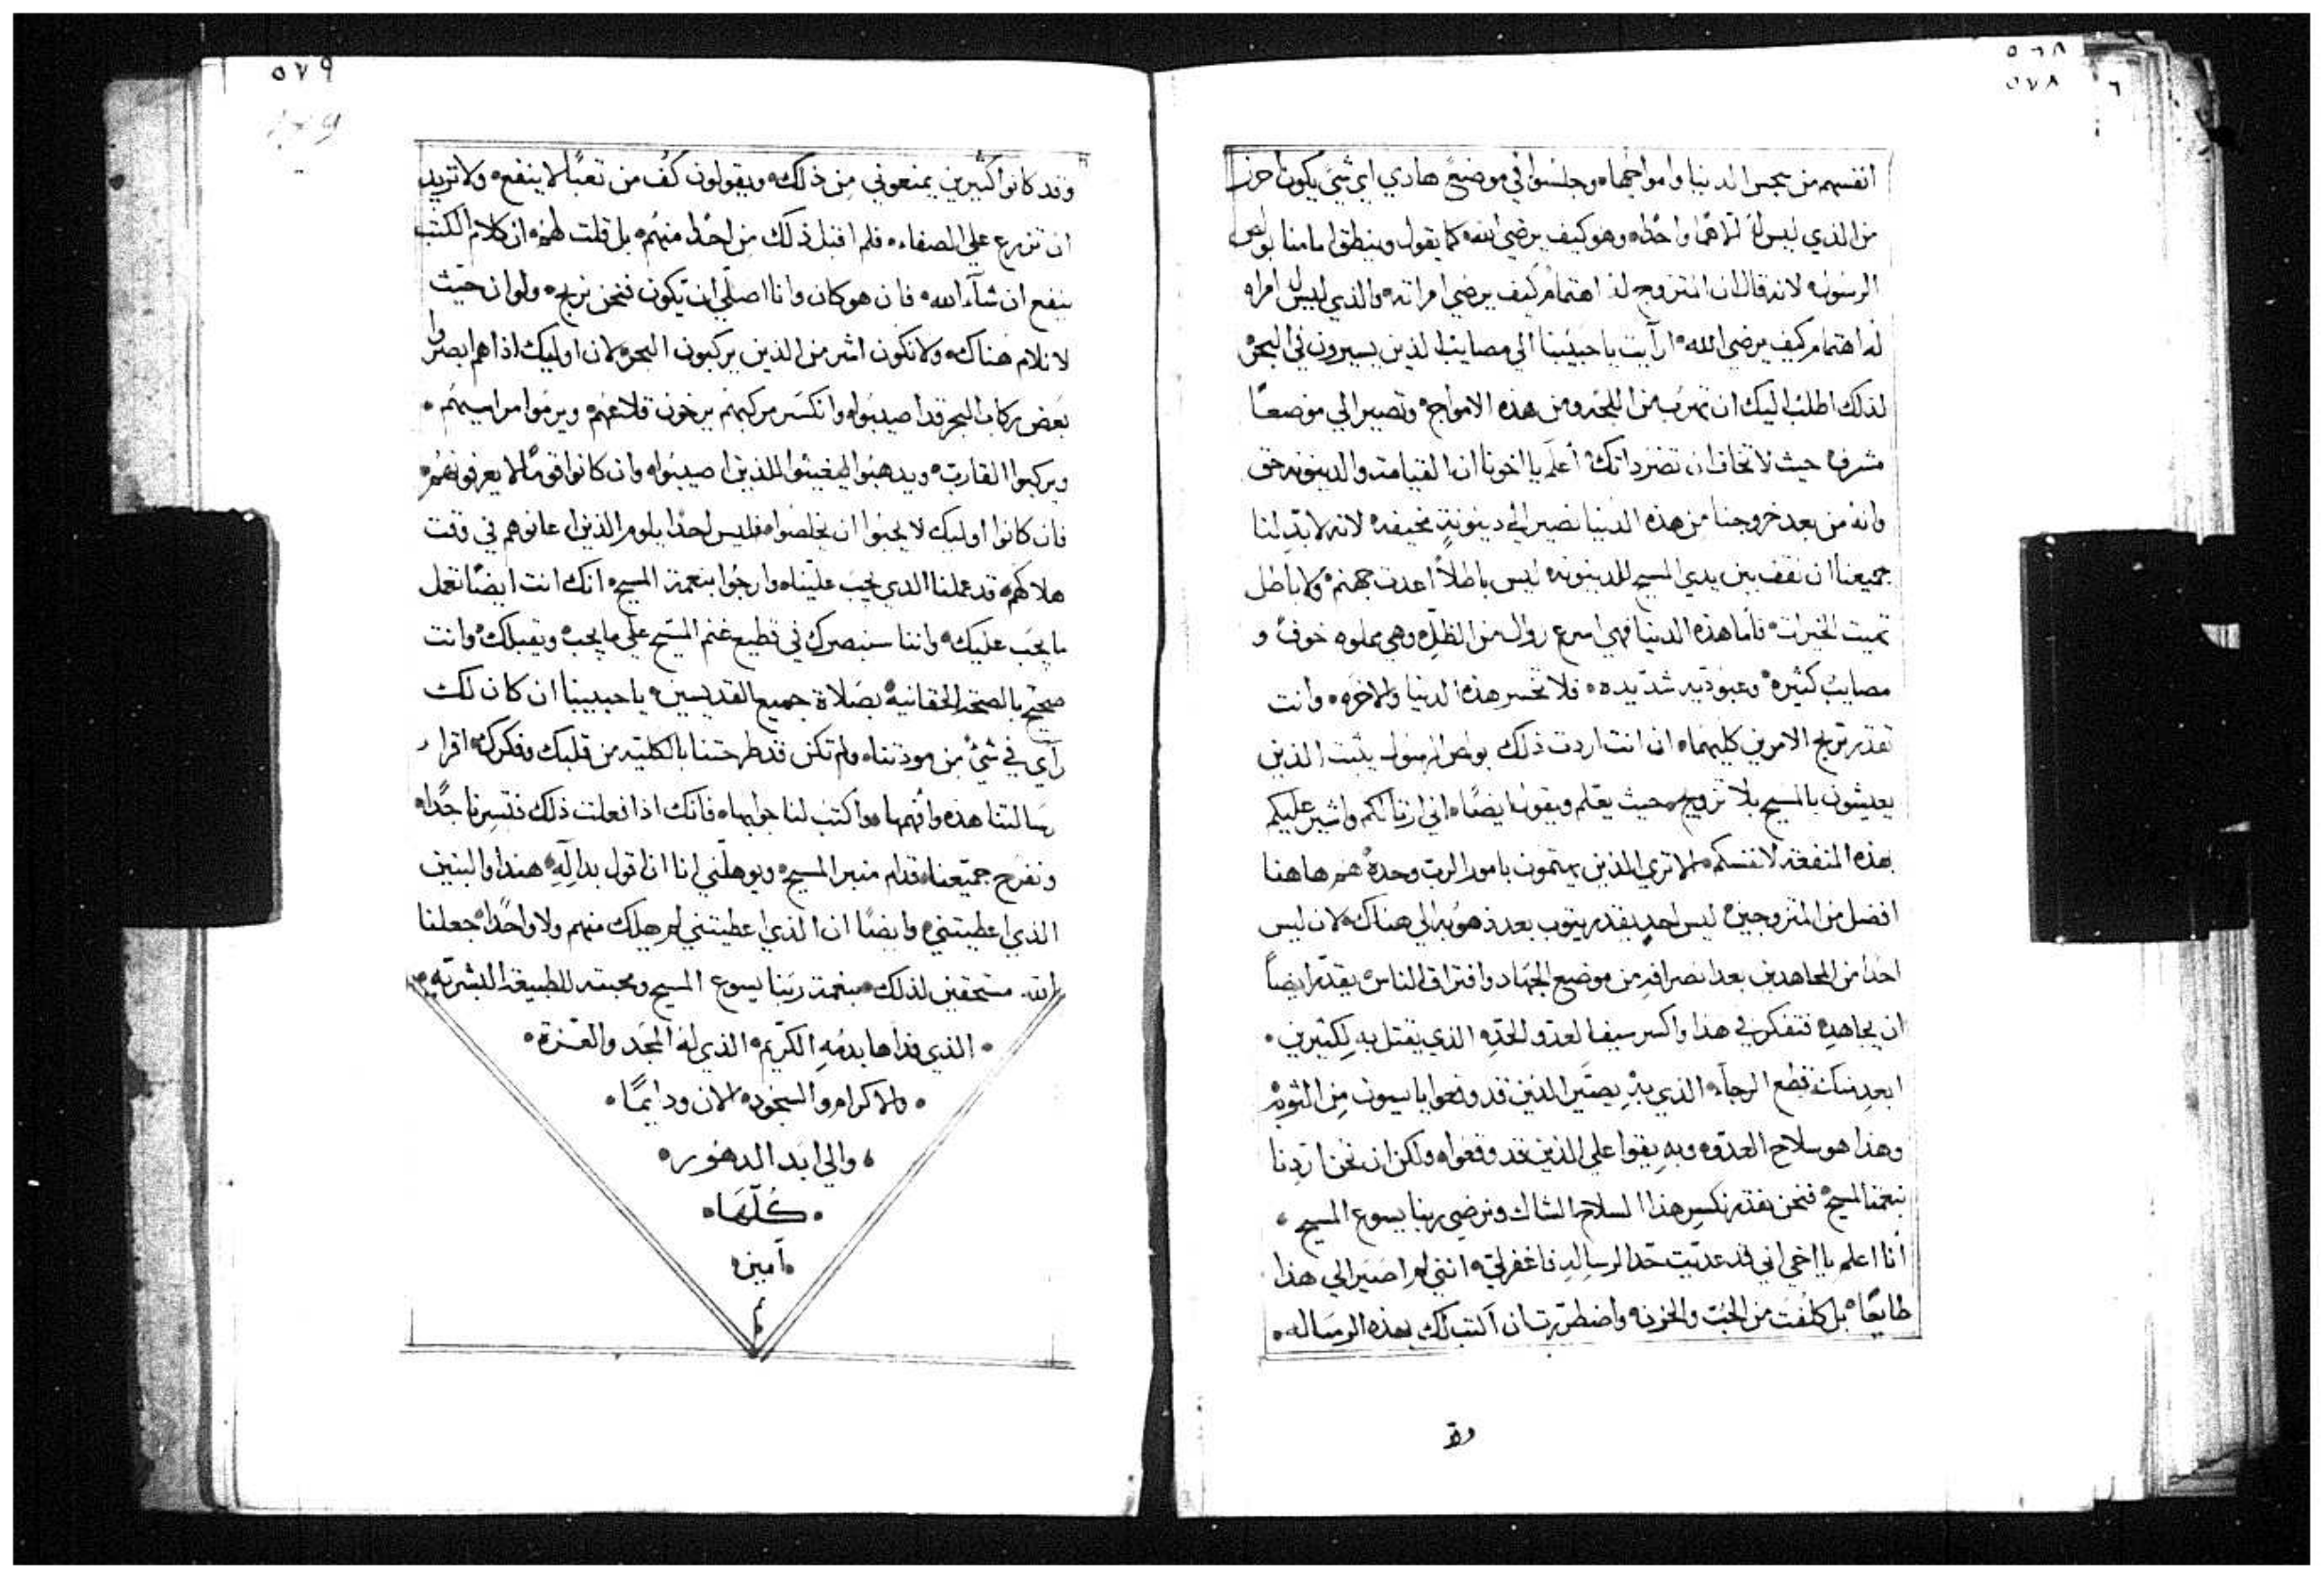 ٥٦٨
٥٧٨
انفسهم من سجس الدنيا وامواجها وجلسوا في موضعً هادي اي شيً يكون احزن
من الذي ليس له الاهمًا واحدًا وهو كيف يرضي الله كما يقول وينطق امامنا بولص
الرسول لانه قال ان المتزوج له اهتمام كيف يرضي امراته والذي ليس له امراه
له اهتمام كيف يرضي الله ارآيت يا حبيبنا الي مصايب الذين يسيرون في البحر
لذلك اطلب اليك ان تهرب من اللجه ومن هذه الامواج وتصير الي موضعًا
مشرف حيث لا تخاف ان تضر ذاتك أعلم يا اخونا ان القيامه والدينونه حق
وانه من بعد خروجنا من هذه الدنيا نصير الي دينونةٍ مخيفه لانه لابد لنا
جميعنا ان نقف بين يدي المسيح للدينونه ليس باطلاً اعدت جهنم ولا باطل
تميت الخيرات فأما هذه الدنيا فهي اسرع زوال من الظل وهي مملوه خوف و
مصايب كثيره وعبوديه شديده فلا تخسر هذه الدنيا والاخره وانت
تقدر تربح الامرين كليهما ان انت اردت ذلك بولص الرسول يثبت الذين
يعيشون بالمسيح بلا تزويج حيث يعلم ويقول ايضًا اني ارثا لكم واشير عليكم
بهذه المنفعه لانفسكم الا تري الذين يهتمون بامور الرب وحده هم هاهنا
افضل من المتزوجين ليس احد يقدر يتوب بعد ذهوبه الي هناك لان ليس
احدًا من المجاهدين بعد انصرافه من موضع الجهاد وافتراق الناس يقدر ايضاً
ان يجاهد فتفكر في هذا واكسر سيف العدو الحده الذي يقتل به لكثيرين
ابعد منك قطع الرجآء الذي به يصير الذين قد وقعوا يايسون من التوبه
وهذا هو سلاح العدو وبه يقوا علي الذين قد وقعوا ولكن ان نحن اردنا
بنعمة المسيح فنحن نقدر نكسر هذا السلاح الشاك ونرضي ربنا يسوع المسيح
أنا اعلم يا اخي اني قد عديت حد الرساله فاغفر لي انني لم اصير الي هذا
طايعًا بل كلفت من الحب والحزن واضطررت ان اكتب لك بهذه الرساله
وقد
٥٧٩
وقد كانوا كثيرين يمنعوني من ذلك ويقولون كُف من تعبًا لا ينفع ولا تريد
ان تزرع علي الصفاء فلم اقبل ذلك من احدًا منهم بل قلت لهم ان كلام الكتب
ينفع ان شآء الله فان هو كان وانا اصلي ان يكون فنحن نربح ولو ان حيث
لا نلام هناك ولا نكون اشر من الذين يركبون البحر لان اوليك اذا هم ابصروا
بعض ركاب البحر قد اصيبوا وانكسر مركبهم يرخون قلاعهم ويرموا مراسيهم
ويركبوا القارب ويدهبوا ليغيثوا للذين اصيبوا وان كانوا قومًا لا يعرفونهم
فان كانوا اوليك لا يحبوا ان يخلصوا فليس احدًا يلوم الذين اعانوهم في وقت
هلاكهم قد عملنا الذي يجب علينا وارجوا بنعمة المسيح انك انت ايضًا تعمل
ما يجب عليك واننا سنبصرك في قطيع غنم المسيح علي ما يجب ونقبلك وانت
صحيح بالصحة الحقانيه بصلاة جميع القديسين يا حبيبنا ان كان لك
رآي في شيً من مودتنا ولم تكن قد طرحتنا بالكليه من قلبك وفكرك اقرا
رسالتنا هذه وافهمها واكتب لنا جوابها فانك اذا فعلت ذلك فتسرنا جدًا
ونفرح جميعنا قدام منبر المسيح ويوهلني انا ان اقول بدالةٍ هنذا والبنين
الذي اعطيتني وايضًا ان الذي اعطيتني لم يهلك منهم ولا واحدًا جعلنا
الله مستحقين لذلك بنعمة ربنا يسوع المسيح ومحبته للطبيعه البشريه
الذي فداها بدمه الكريم الذي له المجد والعزة
والاكرام والسجود الان ودايمًا
والي ابد الدهور
كلها
آمين